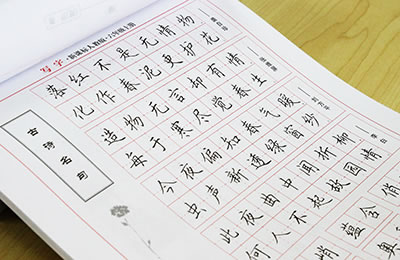 写字·新课标人教版
落红不是无情物
化作春泥更护花
造物无言却有情
每于寒尽觉春生
今夜偏知春气暖
虫声新透绿窗纱
此夜曲中闻折柳
何人不起故园情
蕴含俏
奥
古诗名句